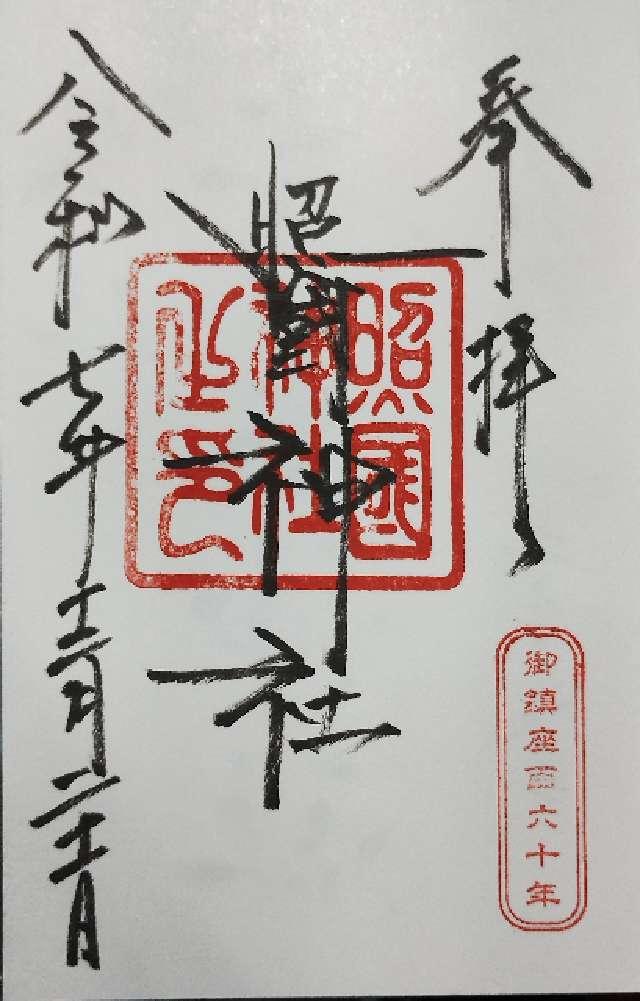 奉拝
照國神社
照国
神社
之印
令和七年十二月二十一日
御鎮座百六十年